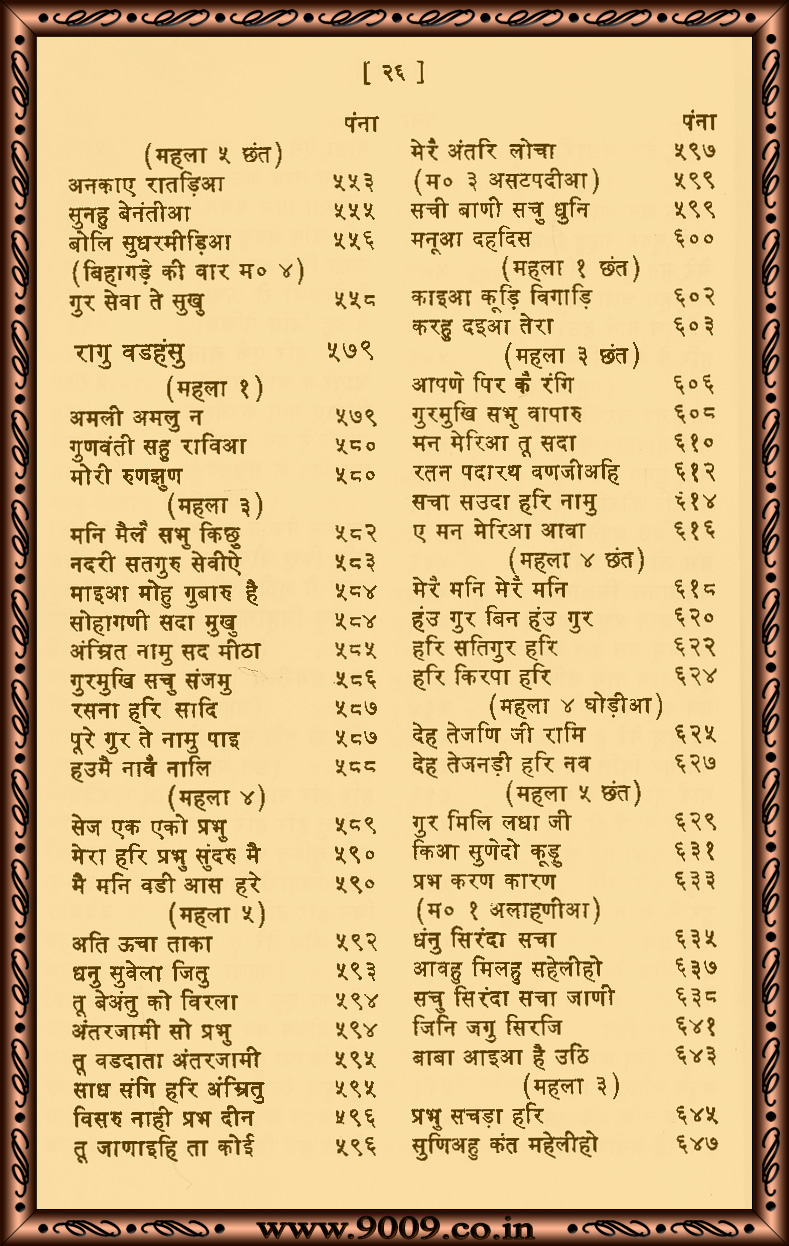 [ २६ ]
पंना
(महला ५ छंत)
अनकाए रातड़िआ ५५३
सुनहु बेनंतीआ ५५५
बोलि सुधरमीड़िआ ५५६
(बिहागड़े की वार म० ४)
गुर सेवा ते सुखु ५५८
रागु वडहंसु ५७९
(महला १)
अमली अमलु न ५७९
गुणवंती सहु राविआ ५८०
मोरी रुणझुण ५८०
(महला ३)
मनि मैलै सभु किछु ५८२
नदरी सतगुरु सेवीऐ ५८३
माइआ मोहु गुबारु है ५८४
सोहागणी सदा मुखु ५८४
अंम्रित नामु सद मीठा ५८५
गुरमुखि सचु संजमु ५८६
रसना हरि सादि ५८७
पूरे गुर ते नामु पाइ ५८७
हउमै नावै नालि ५८८
(महला ४)
सेज एक एको प्रभु ५८९
मेरा हरि प्रभु सुंदरु मै ५९०
मै मनि वडी आस हरे ५९०
(महला ५)
अति ऊचा ताका ५९२
धनु सुवेला जितु ५९३
तू बेअंतु को विरला ५९४
अंतरजामी सो प्रभु ५९४
तू वडदाता अंतरजामी ५९५
साध संगि हरि अंम्रितु ५९५
विसरु नाही प्रभ दीन ५९६
तू जाणाइहि ता कोई ५९६
पंना
मेरै अंतरि लोचा ५९७
(म० ३ असटपदीआ) ५९९
सची बाणी सचु धुनि ५९९
मनूआ दहदिस ६००
(महला १ छंत)
काइआ कूड़ि विगाड़ि ६०२
करहु दइआ तेरा ६०३
(महला ३ छंत)
आपणे पिर कै रंगि ६०६
गुरमुखि सभु वापारु ६०८
मन मेरिआ तू सदा ६१०
रतन पदारथ वणजीअहि ६१२
सचा सउदा हरि नामु ६१४
ए मन मेरिआ आवा ६१६
(महला ४ छंत)
मेरै मनि मेरै मनि ६१८
हंउ गुर बिन हंउ गुर ६२०
हरि सतिगुर हरि ६२२
हरि किरपा हरि ६२४
(महला ४ घोड़ीआ)
देह तेजणि जी रामि ६२५
देह तेजनड़ी हरि नव ६२७
(महला ५ छंत)
गुर मिलि लधा जी ६२९
किआ सुणेदो कूड़ु ६३१
प्रभ करण कारण ६३३
(म० १ अलाहणीआ)
धंनु सिरंदा सचा ६३५
आवहु मिलहु सहेलीहो ६३७
सचु सिरंदा सचा जाणी ६३८
जिनि जगु सिरजि ६४१
बाबा आइआ है उठि ६४३
(महला ३)
प्रभु सचड़ा हरि ६४५
सुणिअहु कंत महेलीहो ६४७
www.9009.co.in